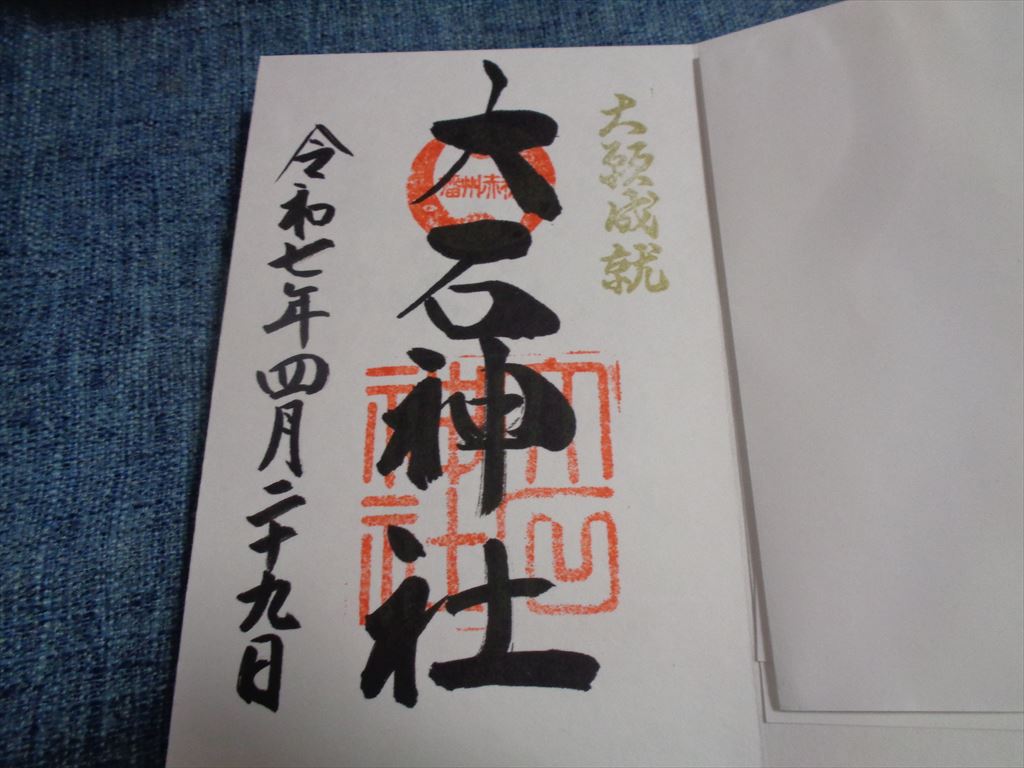 大願成就
大石神社
播州赤穂
大石神社
令和七年四月二十九日